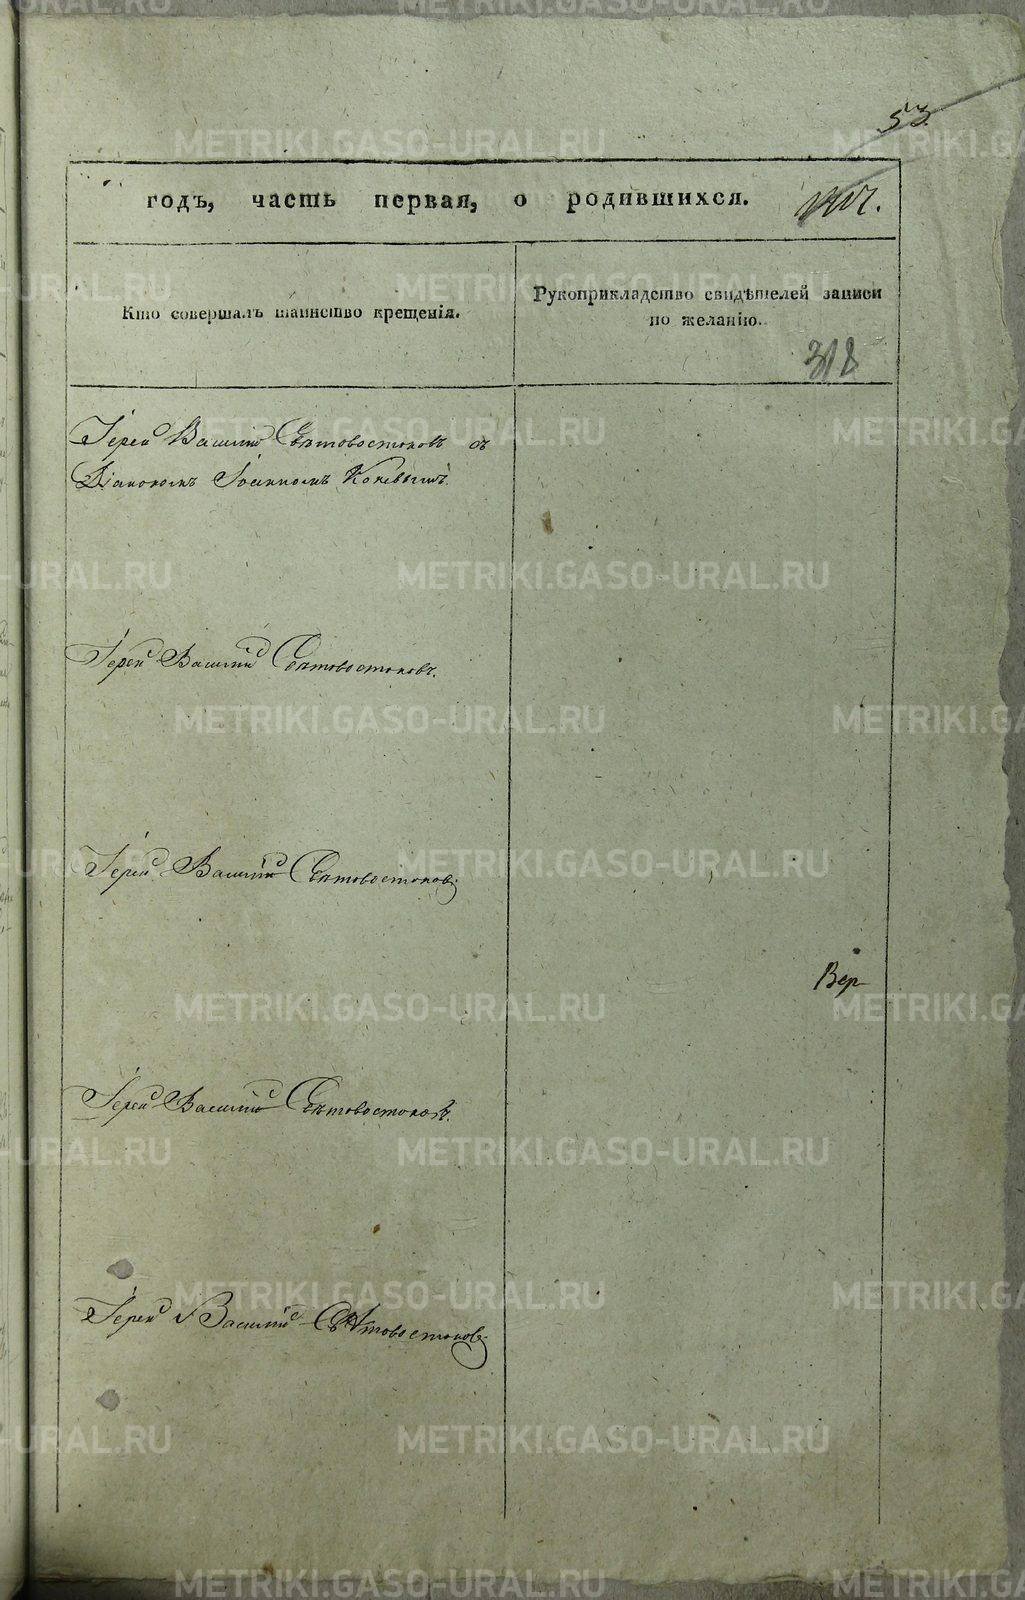 53.
годъ, часть первая, о родившихся.
Кто совершалъ таинство крещенія.
Рукоприкладство свидѣтелей записи
по желанію.
318
Іерей Василій Свѣтовостоковъ съ
Діакономъ Іоанномъ Коневымъ.
Іерей Василій Свѣтовостоковъ.
Іерей Василій Свѣтовостоковъ
Вер
Іерей Василій Свѣтовостоковъ.
Іерей Василій Свѣтовостоковъ
METRIKI.GASO-URAL.RU